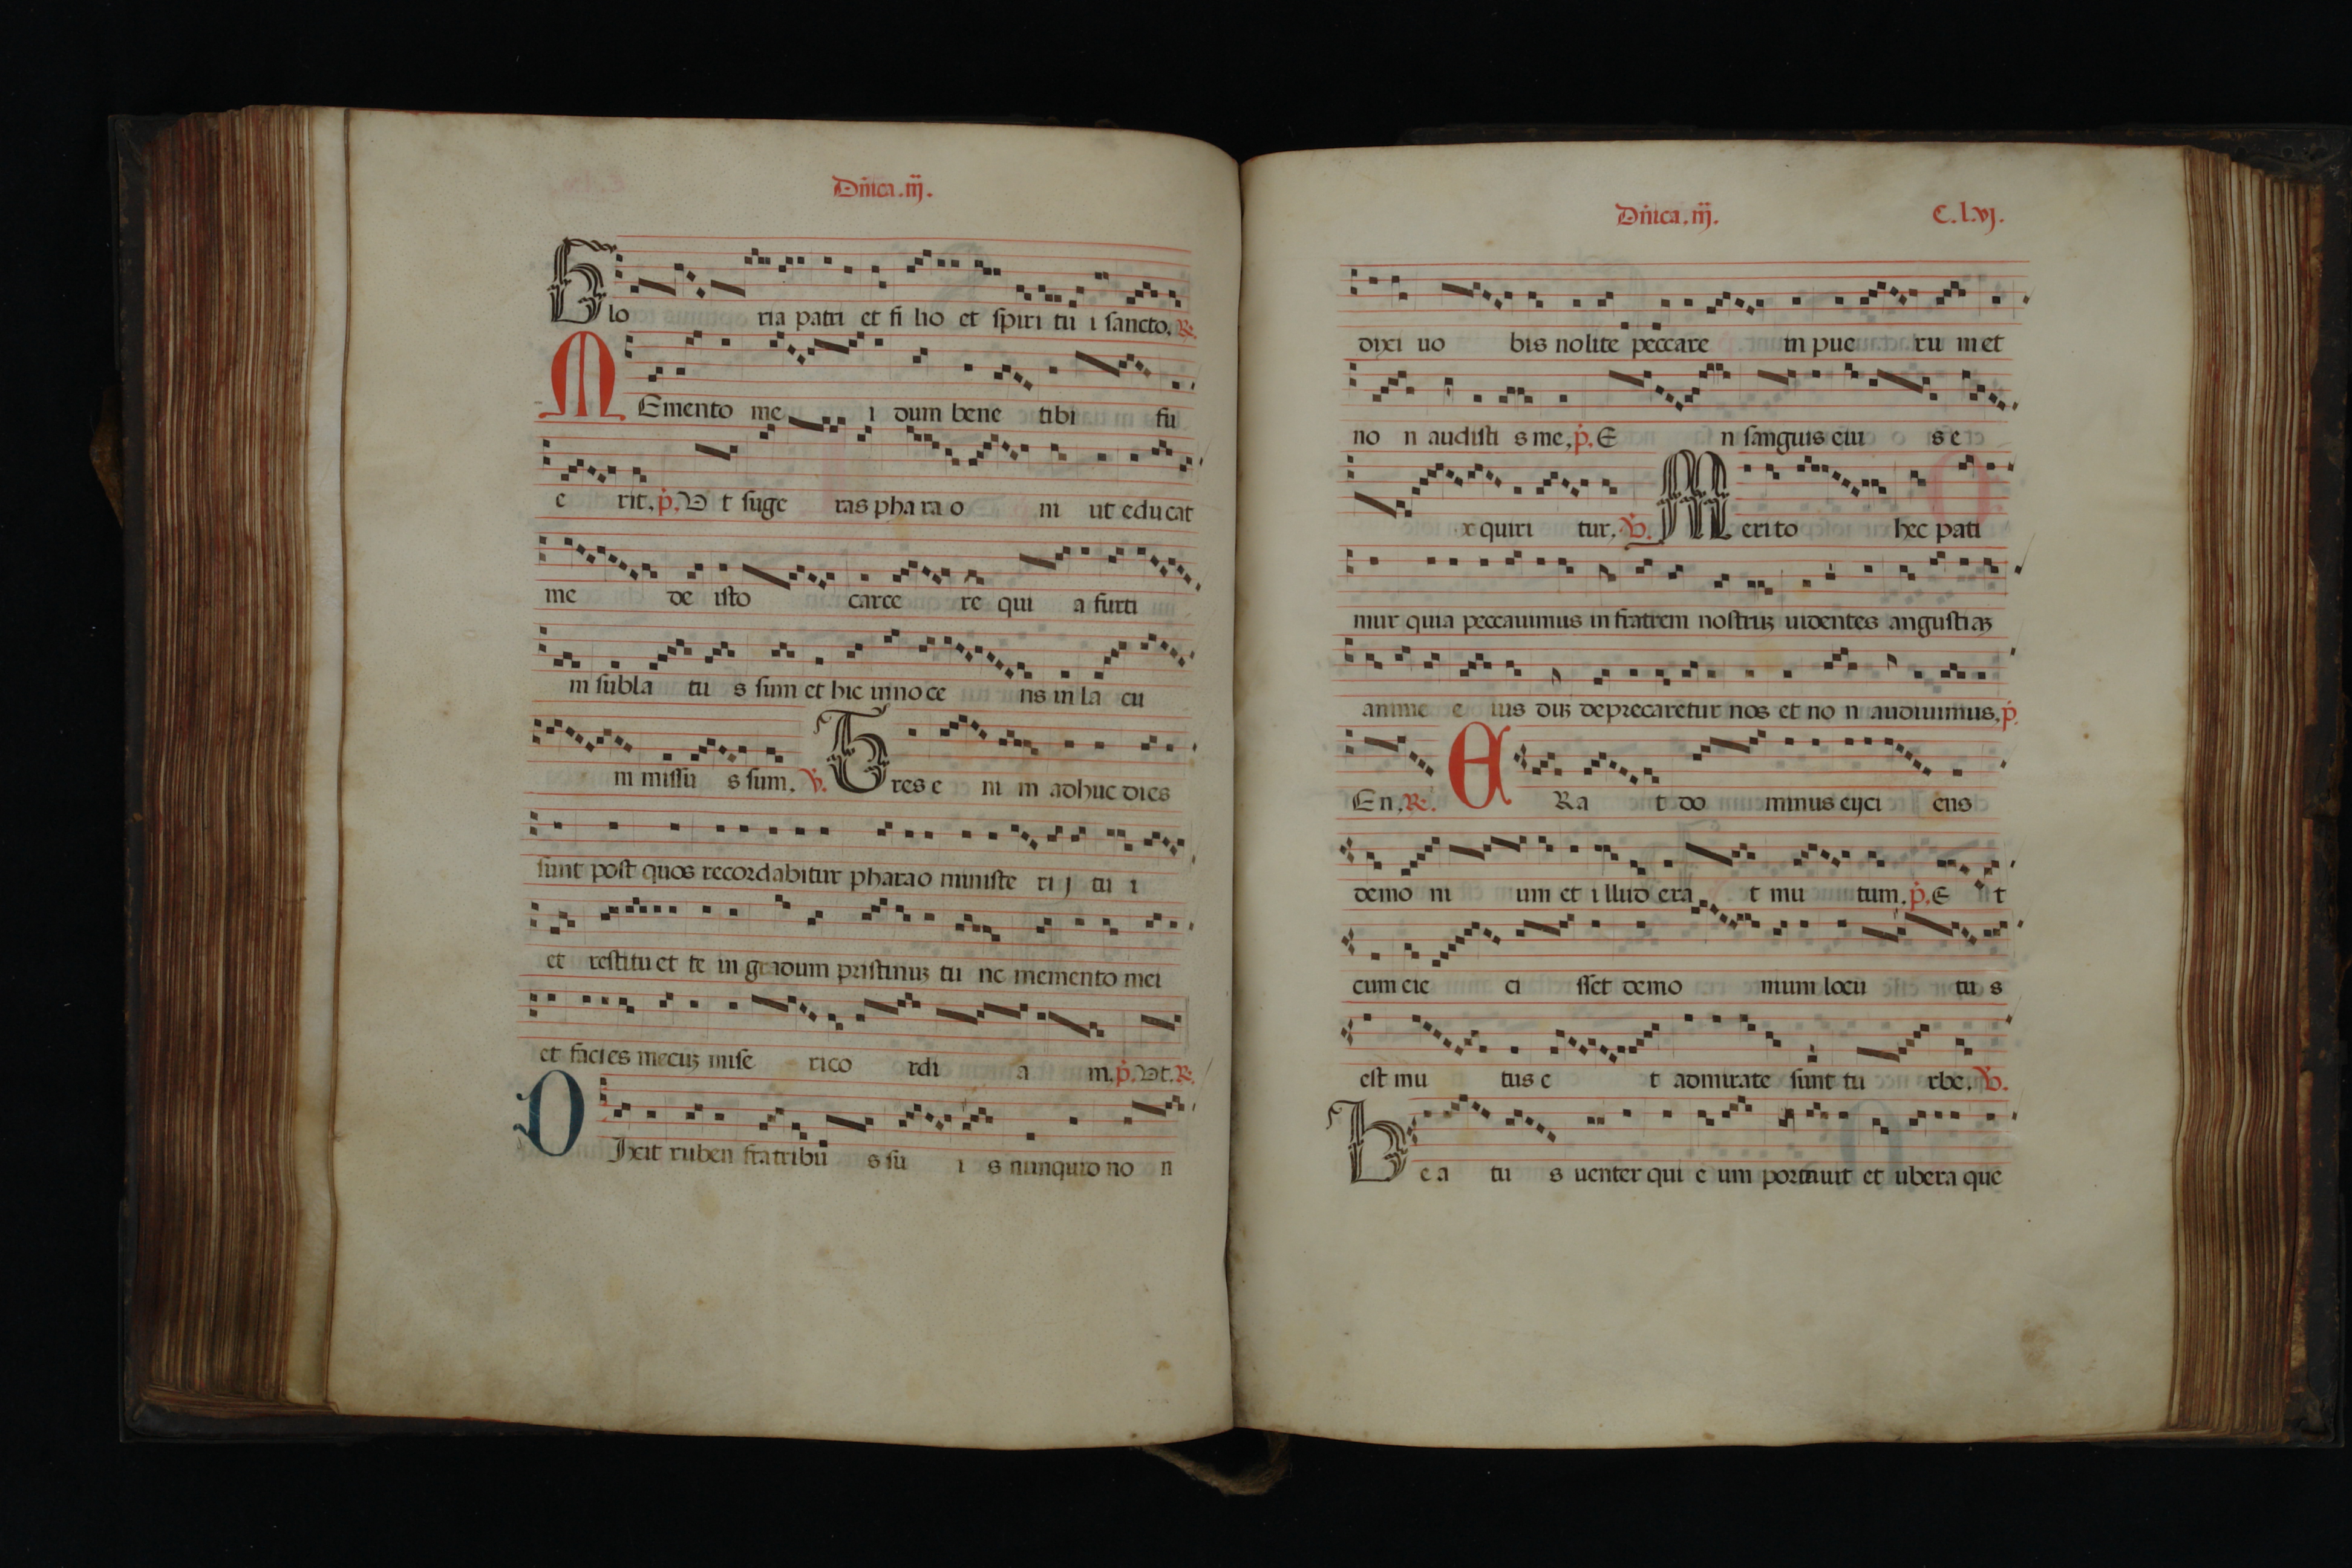 Dñica.iij.
Gloria patri et filio et spiritui sancto. R.
MEmento mei dum bene tibi fu
erit. p. Ut sugeras pharaoni ut educat
me de isto carcere quia furti
m sublatus sum et hic innocens in lacu
m missus sum. V. Tres enim adhuc dies
sunt post quos recordabitur pharao ministerij tui
et restituet te in gradum pristinuz tunc memento mei
et facies mecuz misericordiam. p. Ut. R.
DIxit ruben fratribus suis nunquid non
Dñica.iij. C.l.vj.
dixi uobis nolite peccare in puerum et
non audistis me. p. En sanguis eius e
xquiritur. V. Merito hec pati
mur quia peccauimus in fratrem nostruz uidentes angustiaz
anime eius duz deprecaretur nos et non audiuimus. p.
En. R. ERat dominus eijciens
demonium et illud erat mutum. p. Et
cum eiecisset demonium locutus
est mutus et admirate sunt turbe. V.
Beatus uenter qui e um portauit et ubera que